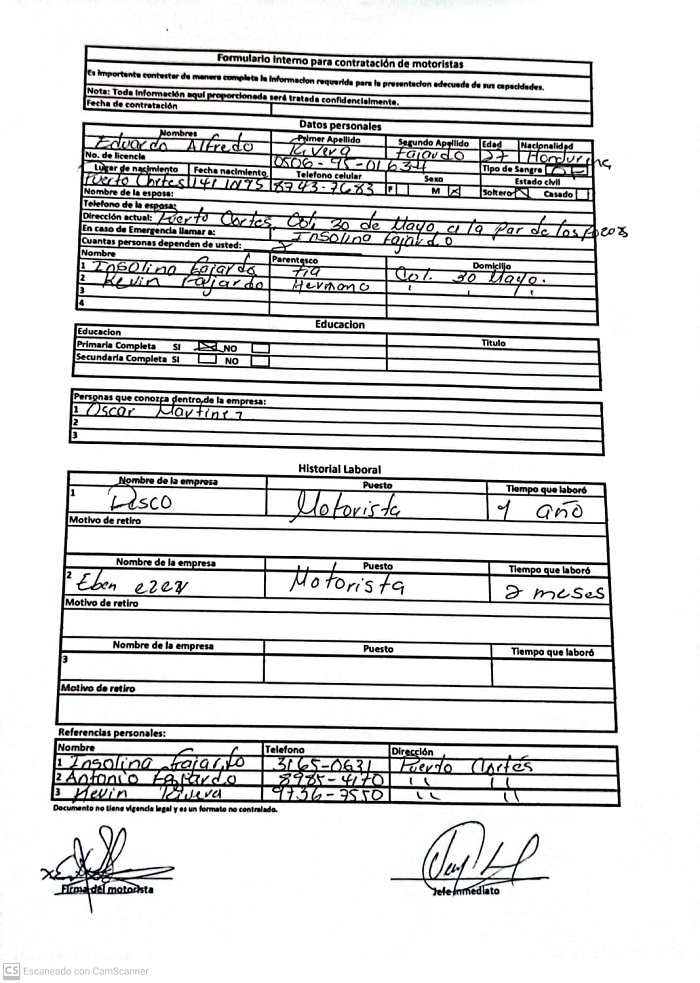 Formulario Interno para contratación de motoristas
Es importante contestar de manera completa la informacion requerida para la presentacion adecuada de sus capacidades.
Nota: Toda información aquí proporcionada será tratada confidencialmente.
Fecha de contratación
Datos personales
Nombres Primer Apellido Segundo Apellido Edad Nacionalidad
Eduardo Alfredo Rivera Fajardo 27 Hondureña
No. de licencia 0506-95-01634 Tipo de Sangre
Lugar de nacimiento Fecha nacimiento Telefono celular Sexo Estado civil
Puerto Cortes 14/10/95 8743-7683 F M X Soltero Casado
Nombre de la esposa:
Telefono de la esposa:
Dirección actual: Puerto Cortes, Col. 30 de Mayo a la par de los pozos
En caso de Emergencia llamar a: Insolina Fajardo
Cuantas personas dependen de usted: 2
Nombre Parentesco Domicilio
1 Insolina Fajardo tia Col. 30 Mayo.
2 Kevin Fajardo Hermano '' ''
3
4
Educacion
Educacion Titulo
Primaria Completa SI X NO
Secundaria Completa SI NO
Personas que conozca dentro de la empresa:
1 Oscar Martinez
2
3
Historial Laboral
Nombre de la empresa Puesto Tiempo que laboró
1 Motorista 1 año
Motivo de retiro
Nombre de la empresa Puesto Tiempo que laboró
2 Eben ezer Motorista 2 meses
Motivo de retiro
Nombre de la empresa Puesto Tiempo que laboró
3
Motivo de retiro
Referencias personales:
Nombre Telefono Dirección
1 Insolina Fajardo 3165-0631 Puerto Cortés
2 Antonio Fajardo 8985-4170 '' ''
3 Kevin Rivera 9736-7550 '' ''
Documento no tiene vigencia legal y es un formato no controlado.
Firma del motorista Jefe inmediato
CS Escaneado con CamScanner